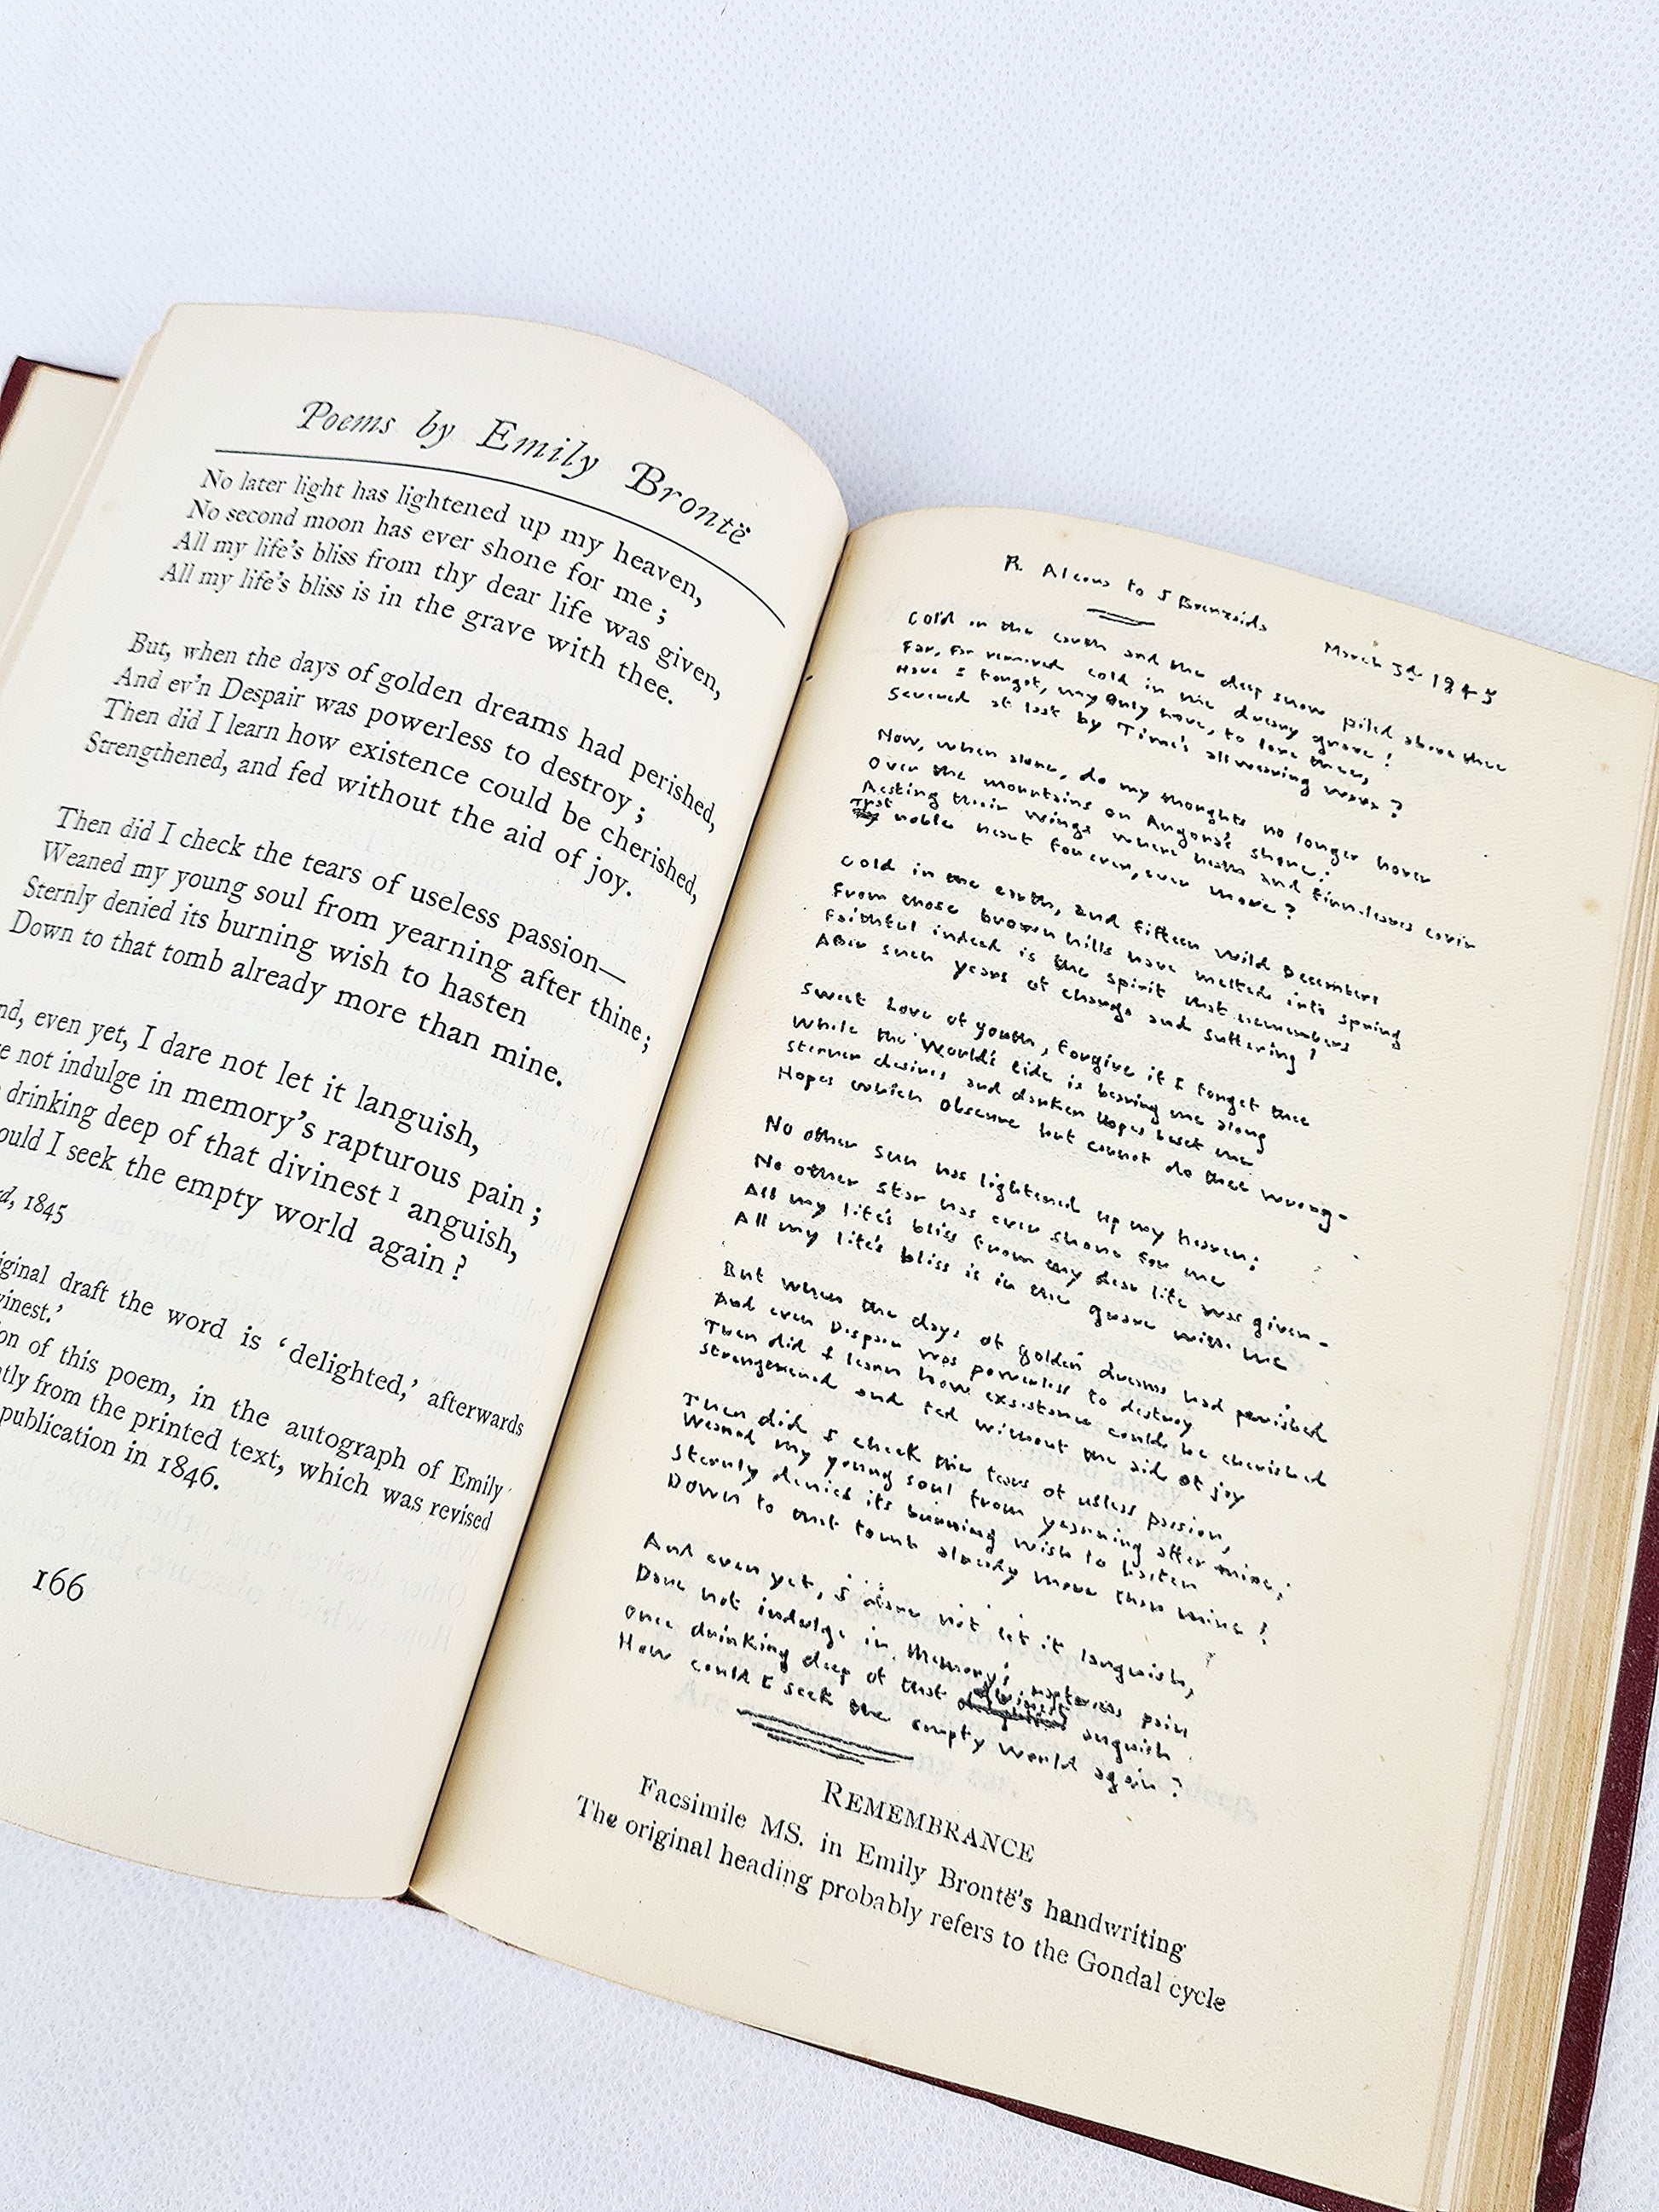 Poems by Emily Brontë
No later light has lightened up my heaven,
No second moon has ever shone for me;
All my life's bliss from thy dear life was given,
All my life's bliss is in the grave with thee.
But, when the days of golden dreams had perished,
And ev'n Despair was powerless to destroy;
Then did I learn how existence could be cherished,
Strengthened, and fed without the aid of joy.
Then did I check the tears of useless passion—
Weaned my young soul from yearning after thine;
Sternly denied its burning wish to hasten
Down to that tomb already more than mine.
nd, even yet, I dare not let it languish,
e not indulge in memory's rapturous pain;
drinking deep of that divinest¹ anguish,
ould I seek the empty world again?
rd, 1845
iginal draft the word is 'delighted,' afterwards
vinest.'
on of this poem, in the autograph of Emily
tly from the printed text, which was revised
publication in 1846.
166
R. Alcona to J Brenzaida
March 3rd 1845
Cold in the earth and the deep snow piled above thee
Far, far removed cold in the dreary grave!
Have I forgot, my Only Love, to love thee,
Severed at last by Time's all wearing wave?
Now, when alone, do my thoughts no longer hover
Over the mountains on Angora's shore;
Resting their wings where heath and fern-leaves cover
That noble heart for ever, ever more?
Cold in the earth, and fifteen wild Decembers
From those brown hills have melted into spring
Faithful indeed is the spirit that remembers
After such years of change and suffering!
Sweet Love of youth, forgive if I forget thee
While the World's tide is bearing me along
Sterner desires and darker Hopes beset me
Hopes which obscure but cannot do thee wrong-
No other sun has lightened up my heaven;
No other star has ever shone for me
All my life's bliss from thy dear life was given-
All my life's bliss is in the grave with thee
But when the days of golden dreams had perished
And even Dispair was powerless to destroy
Then did I learn how existance could be cherished
Strengthened and fed without the aid of joy
Then did I check the tears of usless passion,
Weaned my young soul from yearning after thine;
Sternly denied its burning wish to hasten
Down to that tomb already more than mine!
And even yet, I dare not let it languish,
Dare not indulge in Memory's rapturous pain
Once drinking deep of that divinest anguish
How could I seek the empty world again?
REMEMBRANCE
Facsimile MS. in Emily Brontë's handwriting
The original heading probably refers to the Gondal cycle